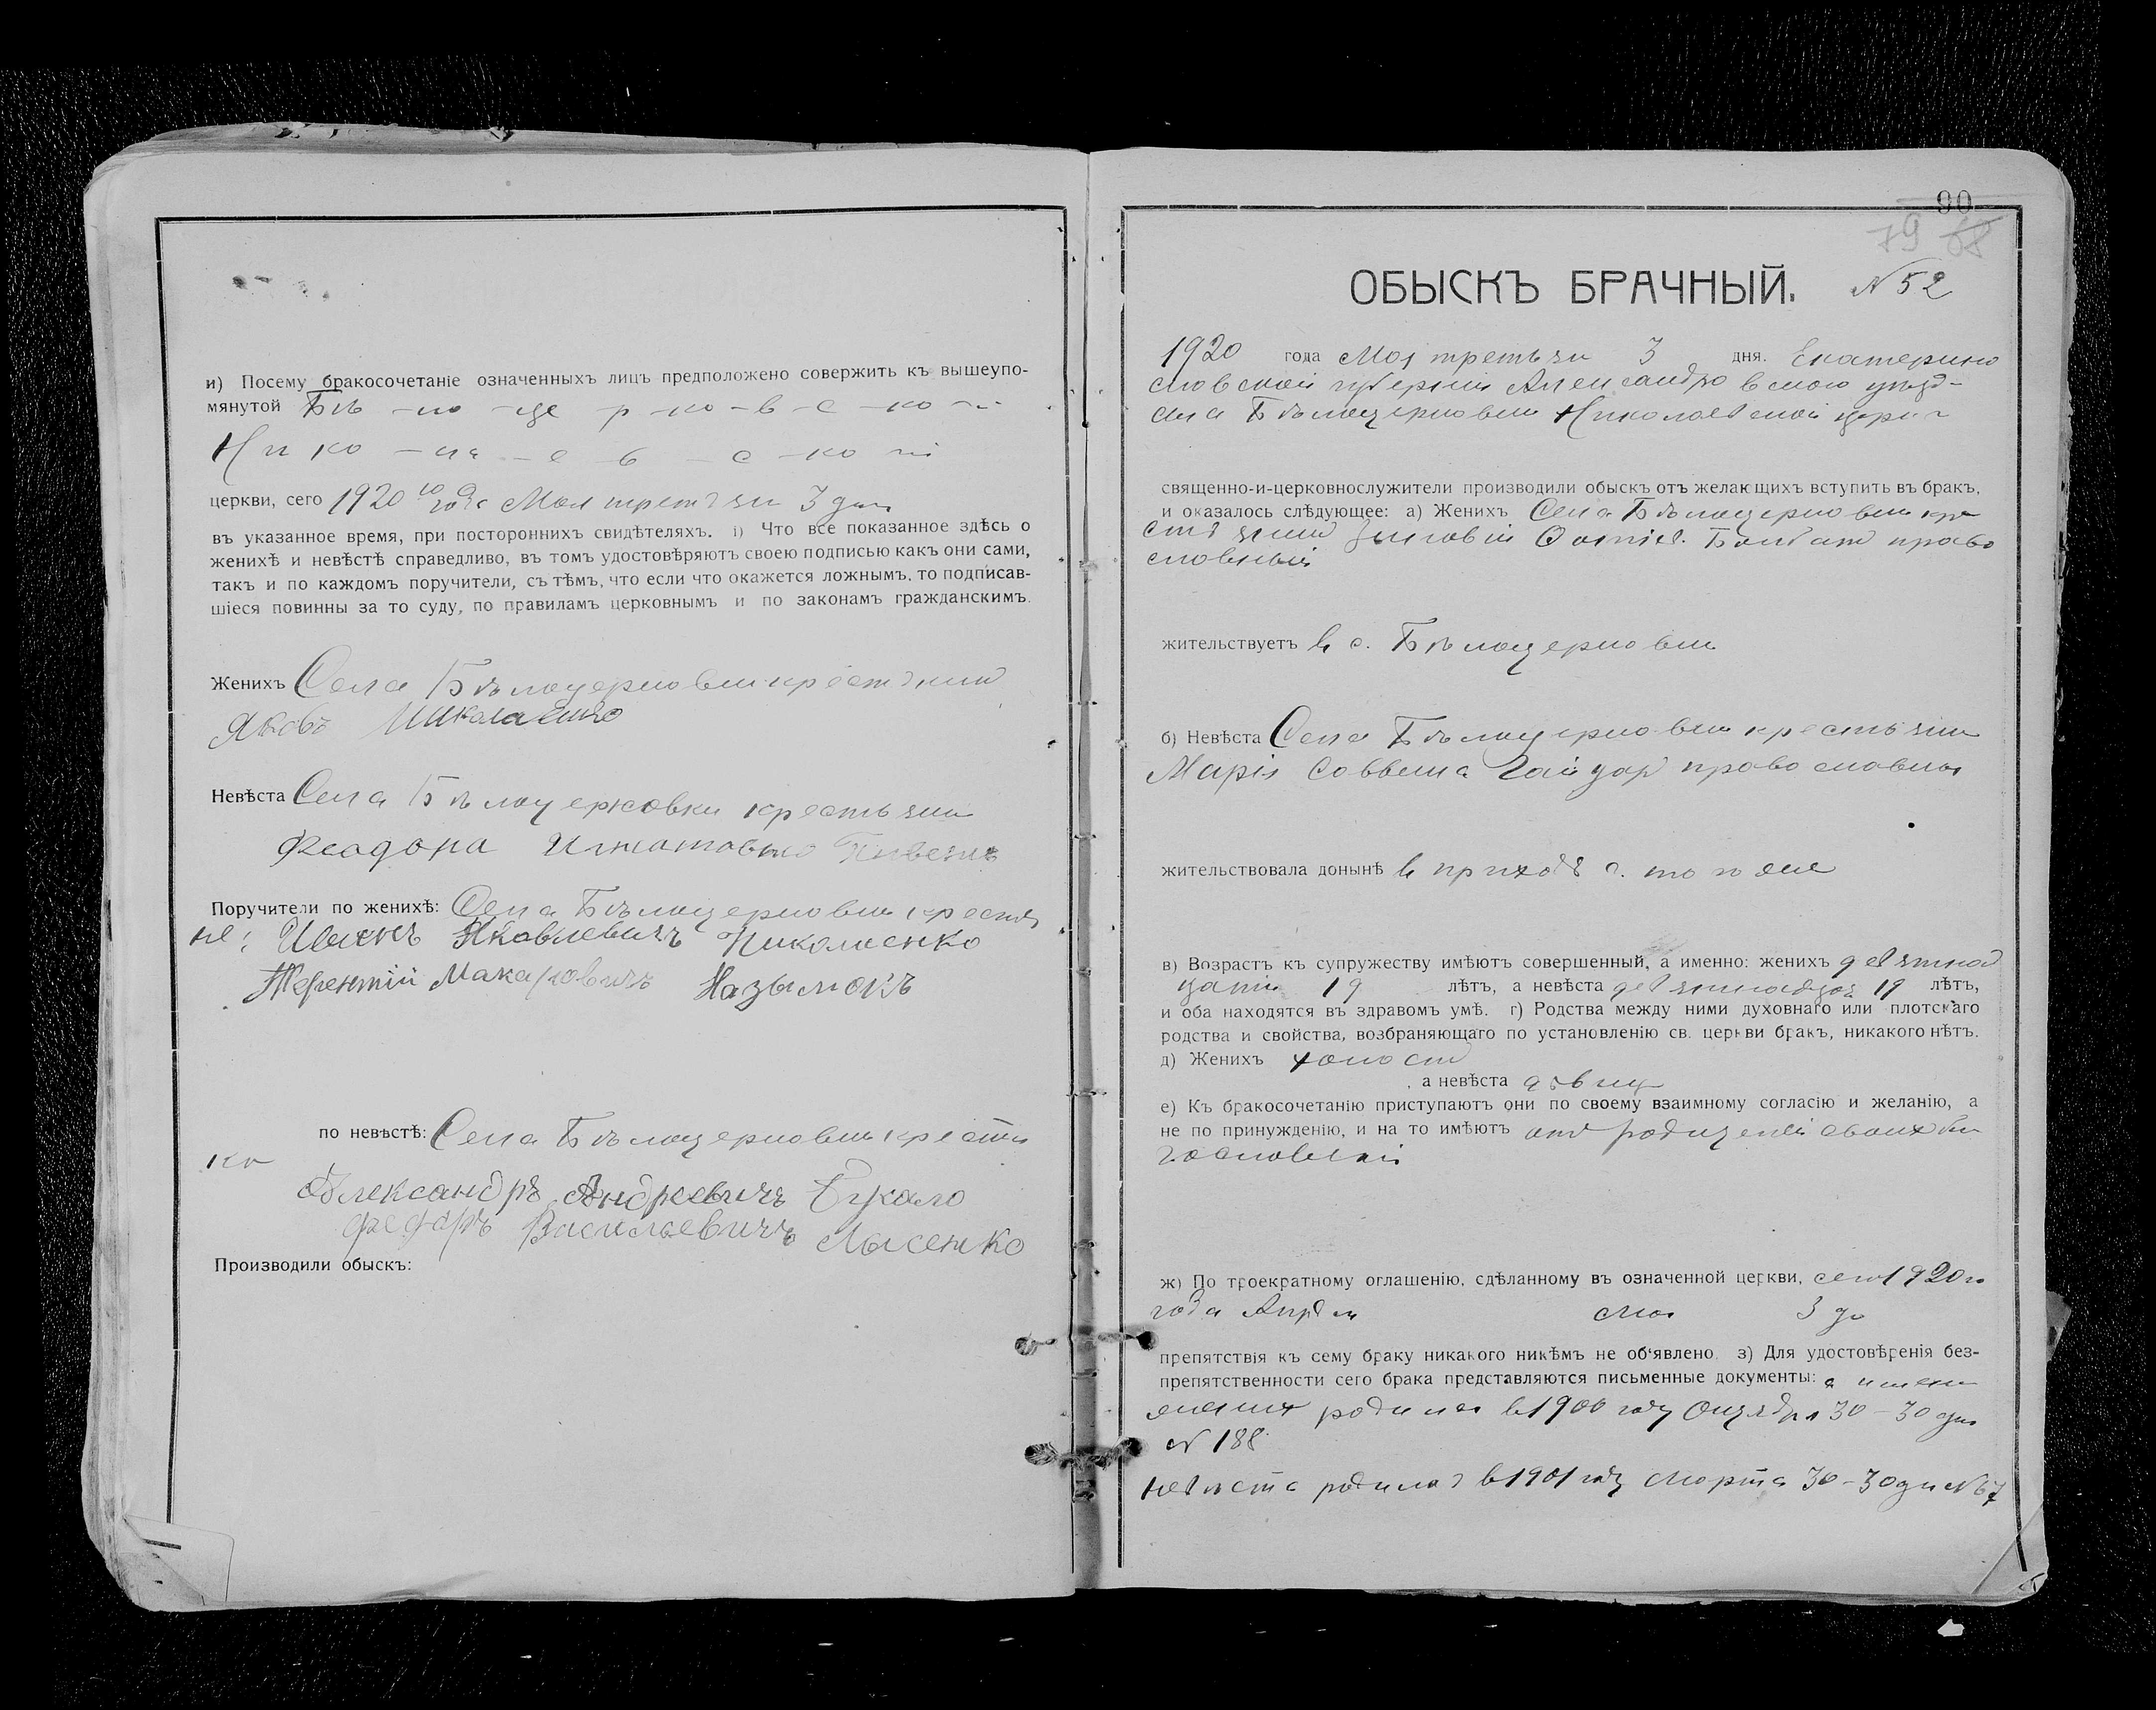 и) Посему бракосочетаніе означенныхъ лицъ предположено совержить къ вышеупо-
мянутой Бѣ-ло-це-р-ко-в-с-ко-й
Ни ко-ла-е-в-с-ко й
церкви, сего 1920 го года Мая третьяго 3 дня
въ указанное время, при постороннихъ свидѣтеляхъ. і) Что все показанное здѣсь о
женихѣ и невѣстѣ справедливо, въ томъ удостовѣряютъ своею подписью какъ они сами,
такъ и по каждомъ поручители, съ тѣмъ, что если что окажется ложнымъ, то подписав-
шіеся повинны за то суду, по правиламъ церковнымъ и по законамъ гражданскимъ.
Женихъ Села Бѣлоцерковки крестянин
Яковъ Николаенко
Невѣста Села Бѣлоцерковки крестьян
Феодора Игнатовна
Поручители по женихѣ: Села Бѣлоцерковки крестя
не: Иванъ Яковлевичъ Николаенко
Терентій Макаровичъ Назымокъ
по невѣстѣ: Села Бѣлоцерковки крестя
не
Александръ Андреевичъ Букало
Федоръ Васильевичъ Лысенко
Производили обыскъ:
90
79 68
ОБЫСКЪ БРАЧНЫЙ. N 52
1920 года Мая третьяго 3 дня. Екатерино
славской губерніи Александровского уѣзда
села Бѣлоцерковки Николаевской церкви
священно-и-церковнослужители производили обыскъ отъ желающихъ вступить въ бракъ,
и оказалось слѣдующее: а) Женихъ Села Бѣлоцерковки кре
стьянин право
славный
жительствуетъ в с. Бѣлоцерковки
б) Невѣста Села Бѣлоцерковки крестьян
Марія Саввина Гайдар православна
жительствовала донынѣ в приходѣ с. того же
в) Возрастъ къ супружеству имѣютъ совершенный, а именно: женихъ девятнад
цати 19 лѣтъ, а невѣста девятнадцат 19 лѣтъ,
и оба находятся въ здравомъ умѣ. г) Родства между ними духовнаго или плотскаго
родства и свойства, возбраняющаго по установленію св. церкви бракъ, никакого нѣтъ.
д) Женихъ холост
, а невѣста дѣвиц
е) Къ бракосочетанію приступаютъ они по своему взаимному согласію и желанію, а
не по принужденію, и на то имѣютъ от родителей своих бла
гословеній
ж) По троекратному оглашенію, сдѣланному въ означенной церкви, сего 1920 го
года Апрѣля Мая 3 дн
препятствія къ сему браку никакого никѣмъ не об'явлено. з) Для удостовѣренія без-
препятственности сего брака представляются письменные документы: а имен
жених родился в 1900 году Октября 30-30 дня
N 188
невѣста родилас в 1901 году Марта 30-30 дн N 67